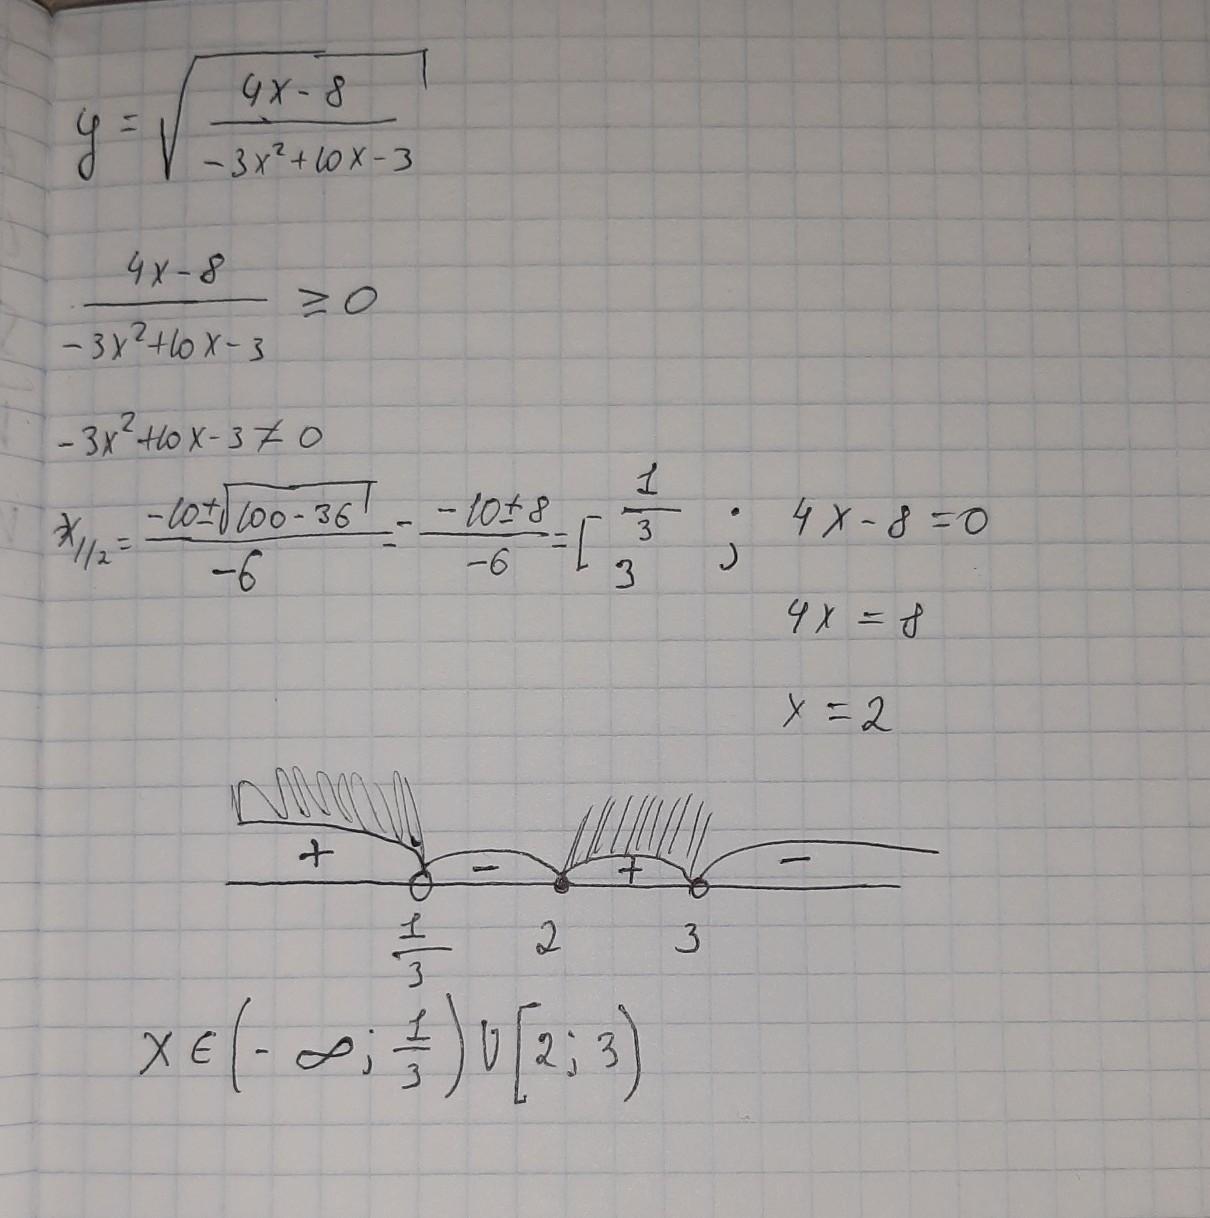 y = √((4x - 8)/(-3x² + 10x - 3))
(4x - 8)/(-3x² + 10x - 3) ≥ 0
-3x² + 10x - 3 ≠ 0
x₁/₂ = (-10 ± √(100 - 36))/(-6) = (-10 ± 8)/(-6) = [ 1/3 3 ; 4x - 8 = 0
4x = 8
x = 2
+ - + -
1/3 2 3
x ∈ (-∞; 1/3) ∪ [2; 3)